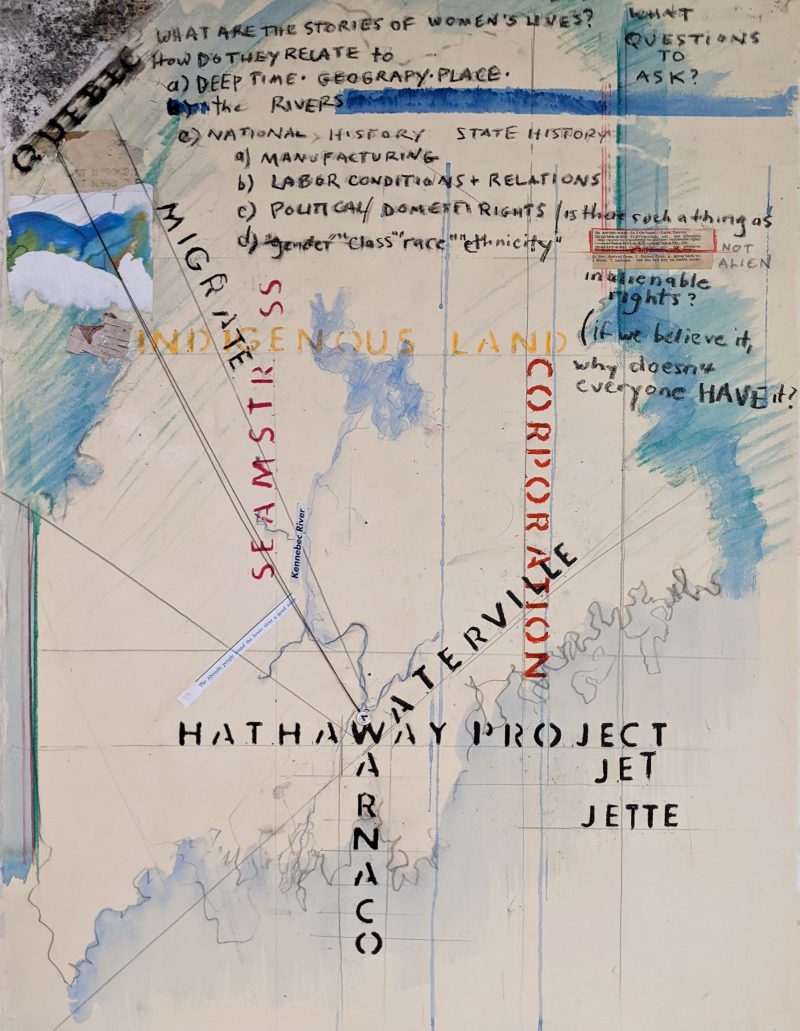 WHAT ARE THE STORIES OF WOMEN'S LIVES?
HOW DO THEY RELATE to
a) DEEP TIME · GEOGRAPY · PLACE ·
the RIVERS
c) NATIONAL HISTORY STATE HISTORY
a) MANUFACTURING
b) LABOR CONDITIONS + RELATIONS
c) POLITICAL / DOMESTI RIGHTS / is there such a thing as
d) "gender" "class" "race" "ethnicity"
WHAT
QUESTIONS
TO
ASK?
NOT
ALIEN
inalienable
rights?
(if we believe it,
why doesn't
everyone HAVE it?
QUEBEC
MIGRATE
SEAMSTRESS
INDIGENOUS LAND
CORPORATION
Kennebec River
The Abenaki people found the lower river a good
WATERVILLE
HATHAWAY PROJECT
JET
JETTE
WARNACO